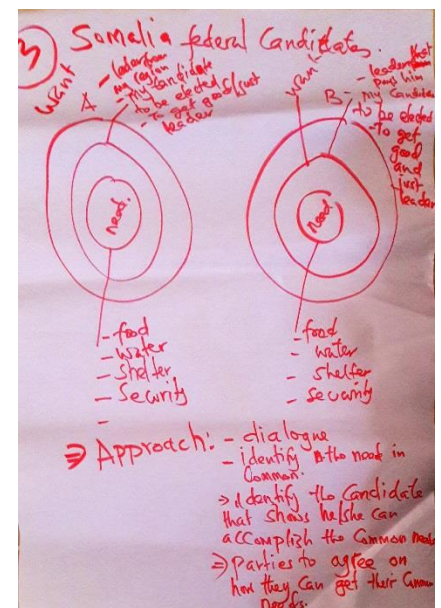 3 Somalia federal Candidates.
want
A - leader from
my region
- my candidate
to be elected
- To get good/just
leader
want
B - leader that
pays him
- my Candidate
to be elected
- To get
good
and
just
leader
need.
need
- food
- water
- Shelter
- Security
-
- food
- water
- shelter
- security
⇒ Approach: - dialogue
- identify the need in
Common.
→ Identify the Candidate
that shows he/she can
accomplish the Common needs
⇒ parties to agree on
how they can get their Common
needs.